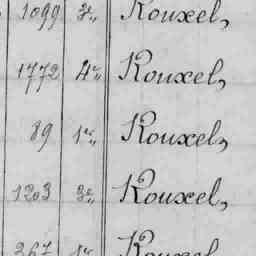 1099 3e,, Rouxel,
1772 4e,, Rouxel,
89 1er,, Rouxel,
1203 3e,, Rouxel,
267 1er Rouxel